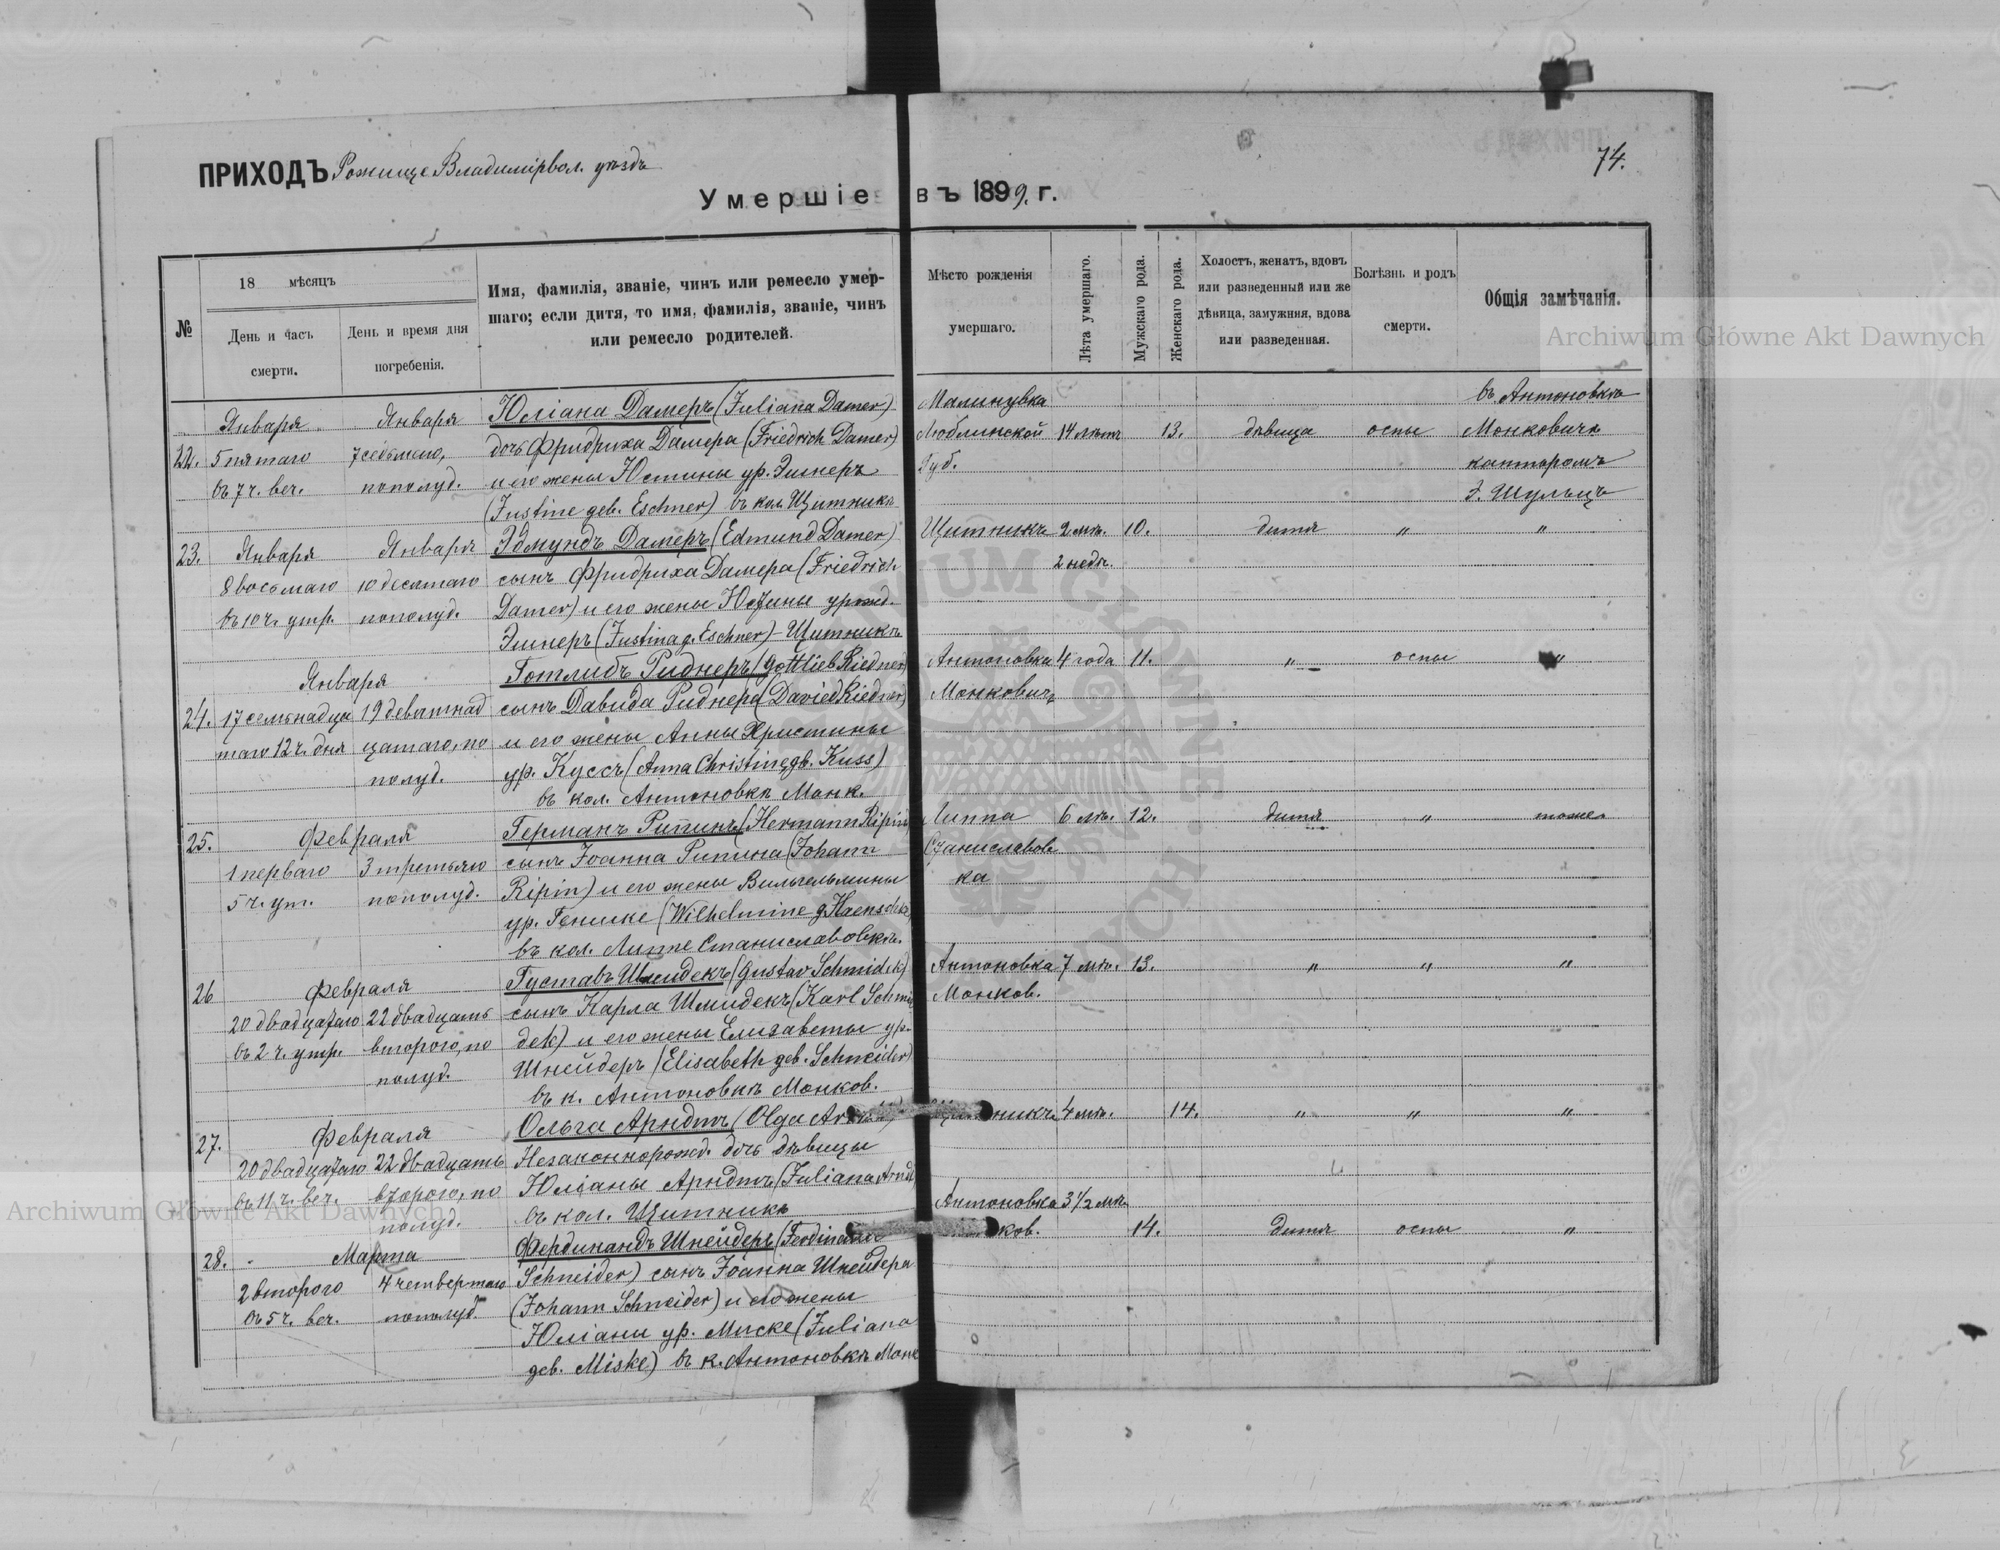 ПРИХОДЪ Рожище Владимірвол. уѣздъ
74.
Умершіе въ 1899. г.
№
18 мѣсяцъ
День и часъ смерти.
День и время дня погребенія.
Имя, фамилія, званіе, чинъ или ремесло умер-
шаго; если дитя, то имя, фамилія, званіе, чинъ
или ремесло родителей.
Мѣсто рожденія умершаго.
Лѣта умершаго.
Мужскаго рода.
Женскаго рода.
Холостъ, женатъ, вдовъ
или разведенный или же
дѣвица, замужняя, вдова
или разведенная.
Болѣзнь и родъ смерти.
Общія замѣчанія.
Января Января Юліана Дамеръ (Juliana Damer) Малинувка въ Антоновкѣ
22. 5 пятаго 7 седьмаго, дочь Фридриха Дамера (Friedrich Damer) Люблинской 14 лѣтъ 13. дѣвица оспы Монковичѣ
въ 7 ч. веч. пополуд. и его жены Юстины ур. Эшнеръ Губ. канторомъ
(Justine geb. Eschner) въ кол. Щитникѣ Э. Шульцъ
23. Января Января Эдмундъ Дамеръ (Edmund Damer) Щитникъ 2 мѣс. 10. дитя " "
8 восьмаго 10 десятаго сынъ Фридриха Дамера (Friedrich 2 недѣ.
въ 10 ч. утр. пополуд. Damer) и его жены Юстины урожд.
Эшнеръ (Justina g. Eschner) - Щитникѣ
Января Готлибъ Риднеръ (Gottlieb Riedner) Антоновка 4 года 11. " оспы "
24. 17 семьнадца 19 девятнад сынъ Давида Риднера (David Riedner) Монковичъ
таго 12 ч. дня цатаго, по и его жены Анны Христины
полуд. ур. Куссъ (Anna Christine geb. Kuss)
въ кол. Антоновкѣ Монк.
25. Февраля Германъ Рипинъ (Hermann Ripin) Липпа 6 мѣс. 12. дитя " тоже
1 перваго 3 третьяго сынъ Іоанна Рипина (Johann Станиславов
5 ч. ут. пополуд. Ripin) и его жены Вильгельмины ка
ур. Геншке (Wilhelmine g. Haenschke)
въ кол. Липпе Станиславовкѣ.
26 Февраля Густавъ Шмидекъ (Gustav Schmidek) Антоновка 7 мѣс. 13. " " "
20 двадцатаго 22 двадцать сынъ Карла Шмидекъ (Karl Schmi Монков.
въ 2 ч. утр. второго, по dek) и его жены Елизаветы ур.
полуд. Шнейдеръ (Elisabeth geb. Schneider)
въ к. Антоновкѣ Монков.
27. Февраля Ольга Арндтъ (Olga никъ 4 мѣс. 14. " " "
20 двадцатаго 22 двадцать Незаконнорожд. дочь дѣвицы
въ 11 ч. веч. второго, по Юліаны Арндтъ (Juliana Arndt
полуд. въ кол. Щитникѣ Антоновка 3 1/2 мѣс.
28. Марта Фердинандъ Шнейдеръ (Ferdinand ков. 14. дитя оспы "
2 второго 4 четвертаго Schneider) сынъ Іоанна Шнейдера
въ 5 ч. веч. пополуд. (Johann Schneider) и его жены
Юліаны ур. Миске (Juliana
geb. Miske) въ к. Антоновкѣ Монк
Archiwum Główne Akt Dawnych
Archiwum Główne Akt Dawnych